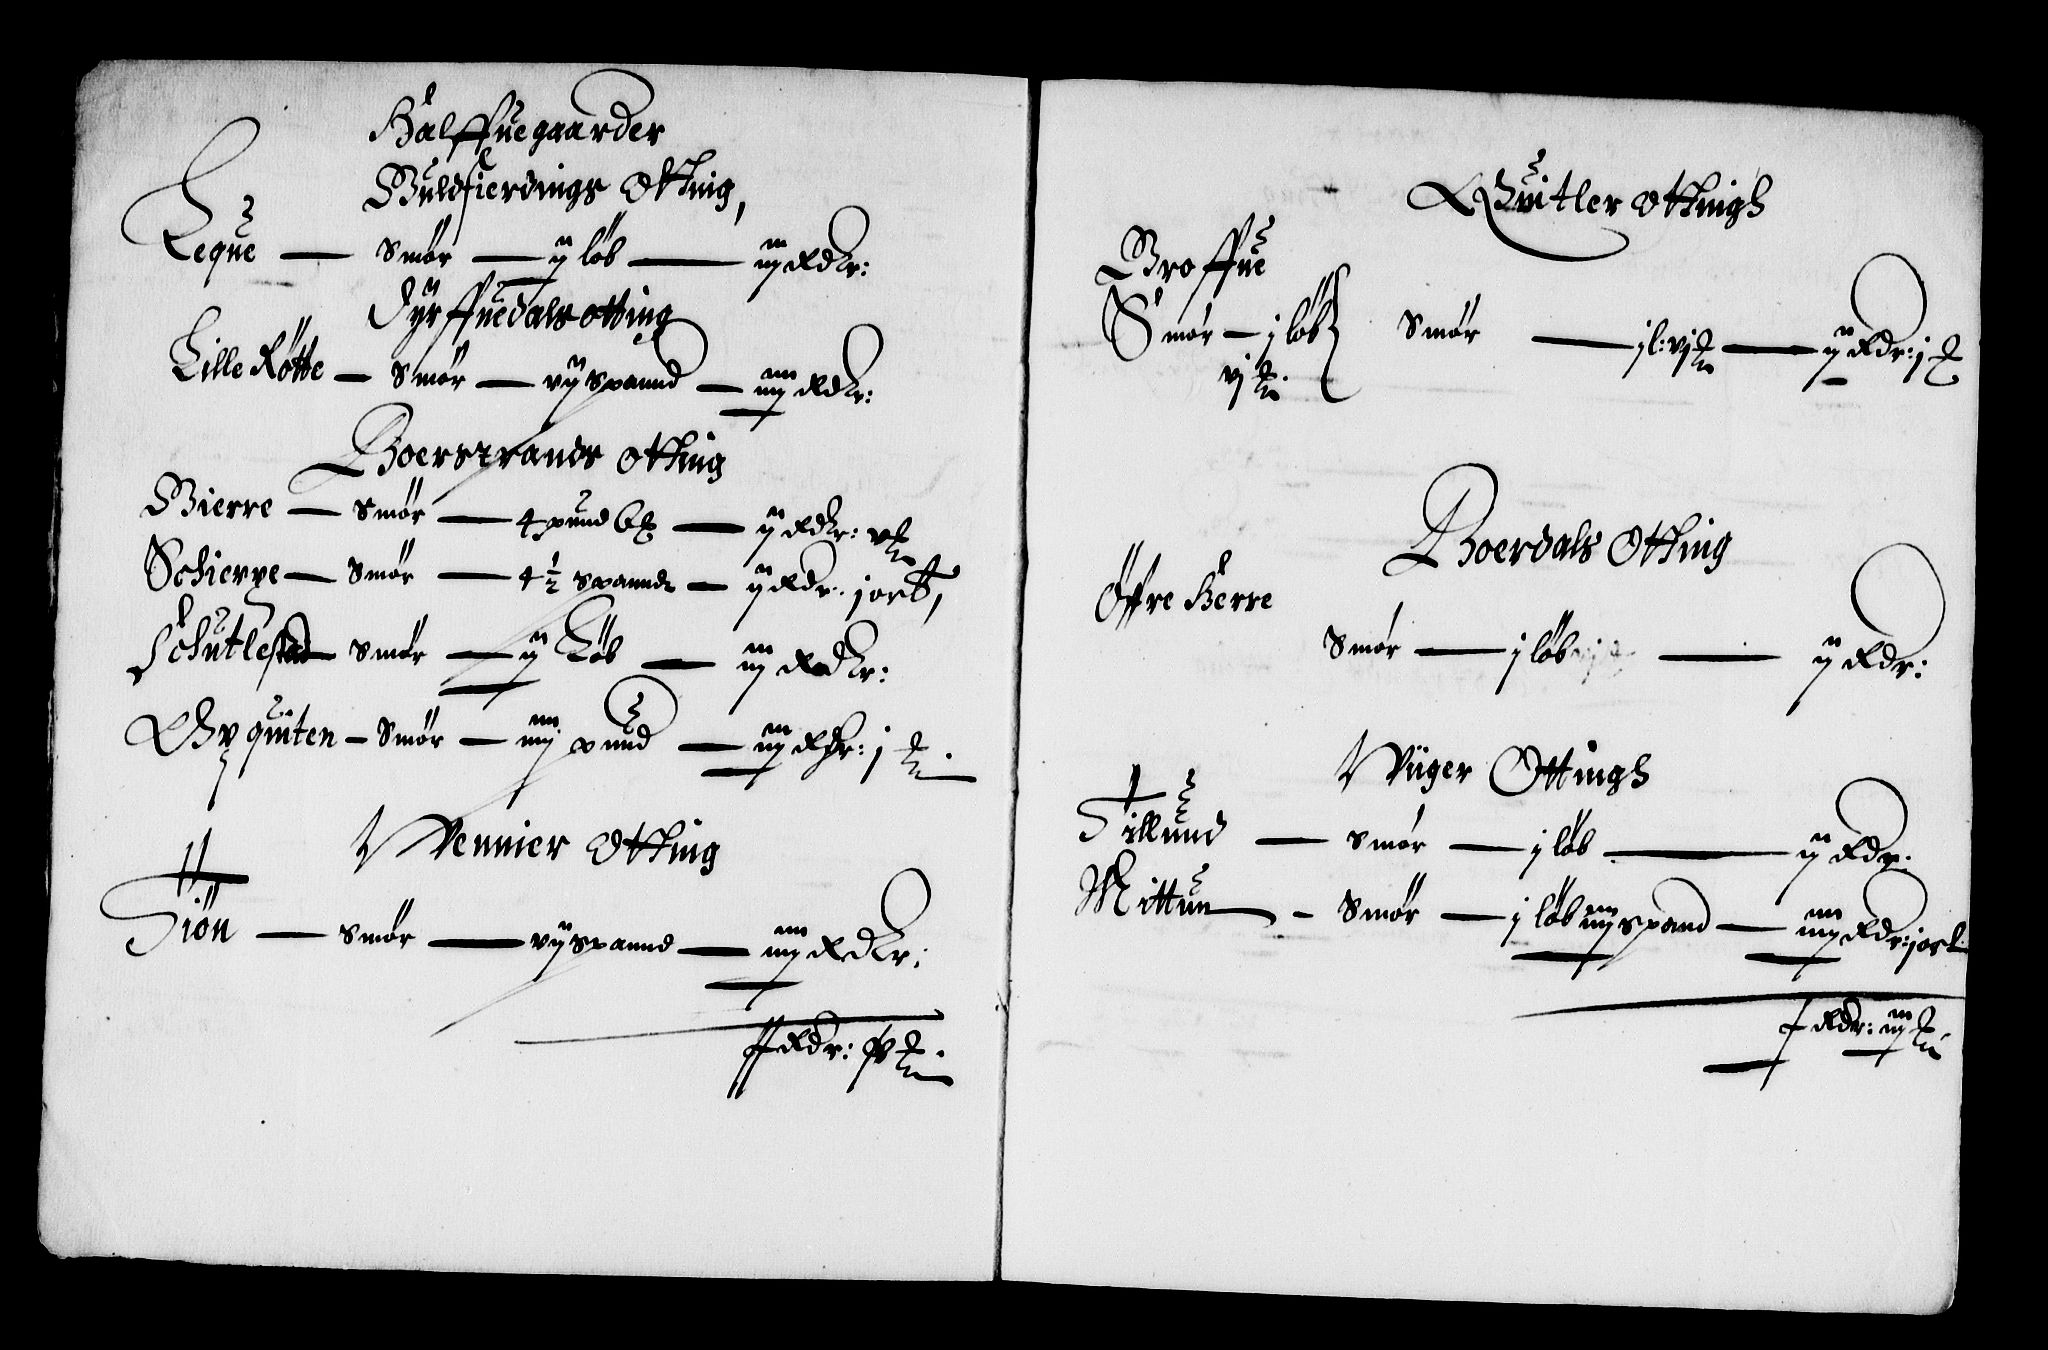 Halffuegaarder
Guldfierdings Otting,
Leque — Smør — ij løb — iij Rdlr:
Dyrffuedals otting
Lille Røtte — Smør — vij spannd — iiij Rdlr:
Boerstrands otting
Bierre — Smør — 4 pund — ij Rdlr:
Schierpe — Smør — 4 1/2 spannd — ij Rdr: j ort,
Schutlestad — Smør — ij Løb — iij Rdlr:
Smør — iiij pund — iij Rdr: j
Wennier Otting
Tiøn — Smør — vij spannd — iiij Rdlr:
Rdr:
Quitler ottingh
Broffue
Smør — j løb } Smør — j l: vj — ij Rdr: j
vj
Boerdals Otting
Øffre Herre
Smør — j løb — ij Rdr:
Wiiger Ottingh
Tillund — Smør — j løb — ij Rdr:
Mittun — Smør — j løb iiij spand — iiij Rdr: j ort
Rdr: iij